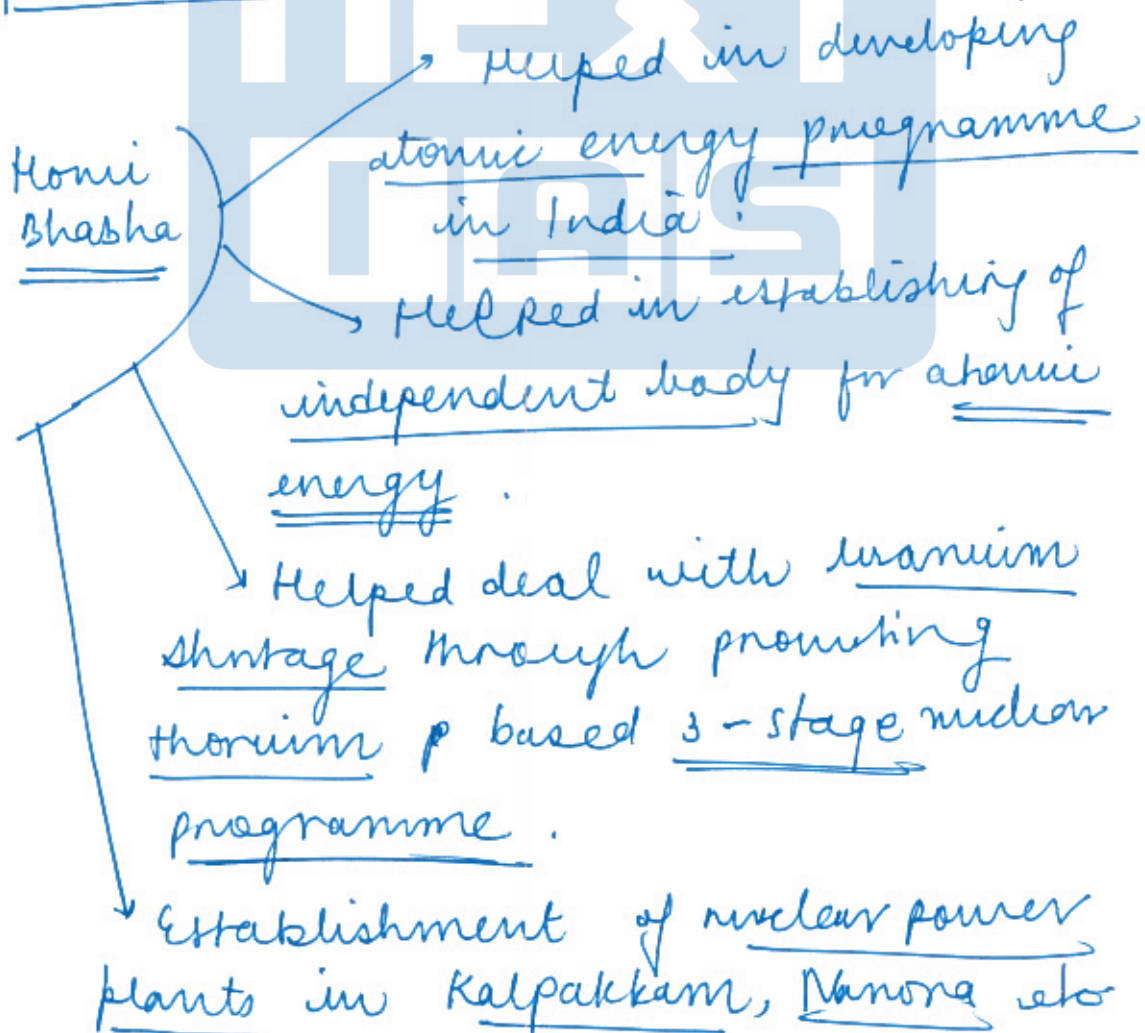 NEXT
IAS
Helped in developing
atomic energy programme
in India.
Homi
Bhabha
Helped in establishing of
independent body for atomic
energy.
Helped deal with uranium
shortage through promoting
thorium based 3-stage nuclear
programme.
Establishment of nuclear power
plants in Kalpakkam, Narora etc